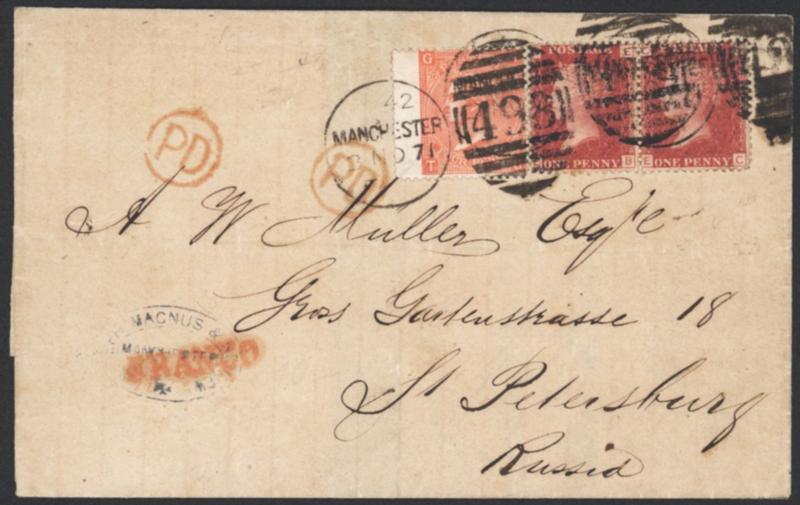 42
MANCHESTER
NO 71
498
G
T
POSTAGE
E
ONE PENNY
B
E
ONE PENNY
C
PD
PD
A W Muller Esqre
Gross Gartenstrasse 18
St Petersburg
Russia
MAGNUS &
FRANCO